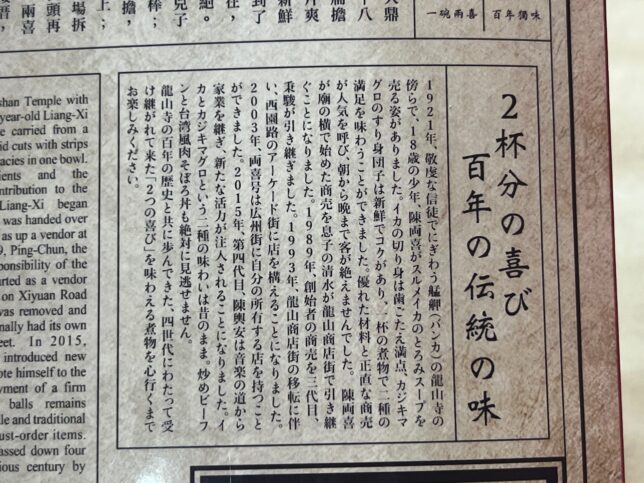 一碗兩喜
百年獨味
2杯分の喜び
百年の伝統の味
1921年、敬虔な信徒でにぎわう艋舺(バンカ)の龍山寺の
傍らで、18歳の少年、陳両喜がスルメイカのとろみスープを
売る姿がありました。イカの切り身は歯ごたえ満点、カジキマ
グロのすり身団子は新鮮でコクがあり、一杯の煮物で二種の
満足を味わうことができました。優れた材料と正直な商売
が人気を呼び、朝から晩まで客が絶えませんでした。陳両喜
が廟の横で始めた商売を息子の清水が龍山商店街で引き継
ぐことになりました。1989年、創始者の商売を三代目、
秉駿が引き継ぎました。1993年、龍山商店街の移転に伴
い、西園路のアーケード街に店を構えることになりました。
2003年、両喜号は広州街に自分の所有する店を持つこと
ができました。2015年、第四代目、陳輿安は音楽の道から
家業を継ぎ、新たな活力が注入されることになりました。イ
カとカジキマグロという二種の味わいは昔のまま。炒めビーフ
ンと台湾風肉そぼろ丼も絶対に見逃せません。
龍山寺の百年の歴史と共に歩んできた、四世代にわたって受
け継がれて来た「2つの喜び」を味わえる煮物を心行くまで
お楽しみください。
shan Temple with
year-old Liang-Xi
e carried from a
id cuts with strips
acies in one bowl.
ients and the
ntribution to the
Liang-Xi began
was handed over
as up a vendor at
9, Ping-Chun, the
ponsibility of the
arted as a vendor
on Xiyuan Road
was removed and
nally had its own
eet. In 2015,
introduced new
ote himself to the
yment of a firm
balls remains
le and traditional
ust-order items.
assed down four
ious century by